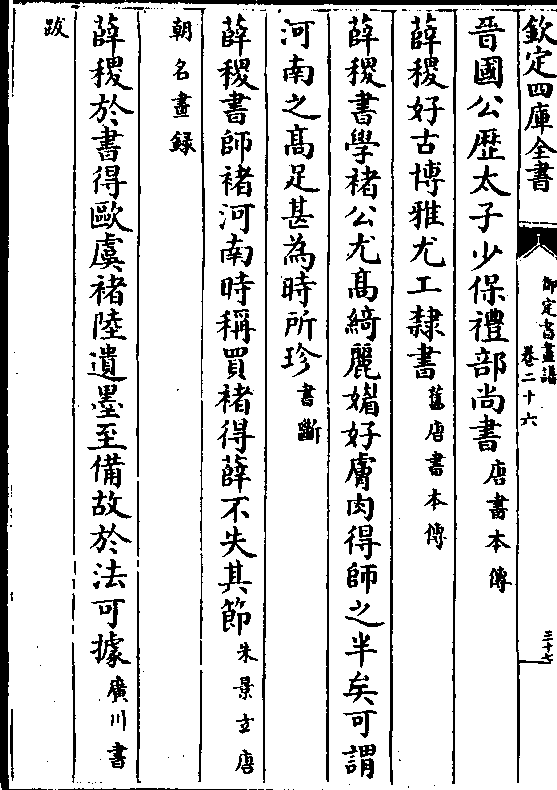 欽定四庫全書
御定書畫譜
卷二十六
三十七
晉國公歴太子少保禮部尚書唐書本傳
薛稷好古博雅尤工隸書舊唐書本傳
薛稷書學褚公尤髙綺麗媚好膚肉得師之半矣可謂
河南之髙足甚為時所珍書斷
薛稷書師褚河南時稱買褚得薛不失其節朱景玄唐
朝名畫録
薛稷於書得歐虞褚陸遺墨至備故於法可據廣川書
跋